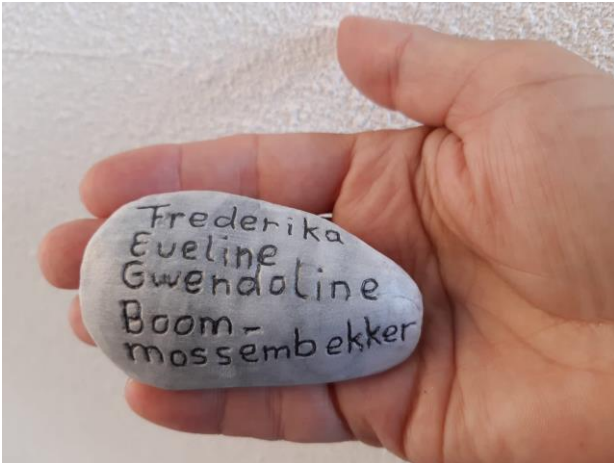 Frederika
Eveline
Gwendoline
Boom-
mossembekker